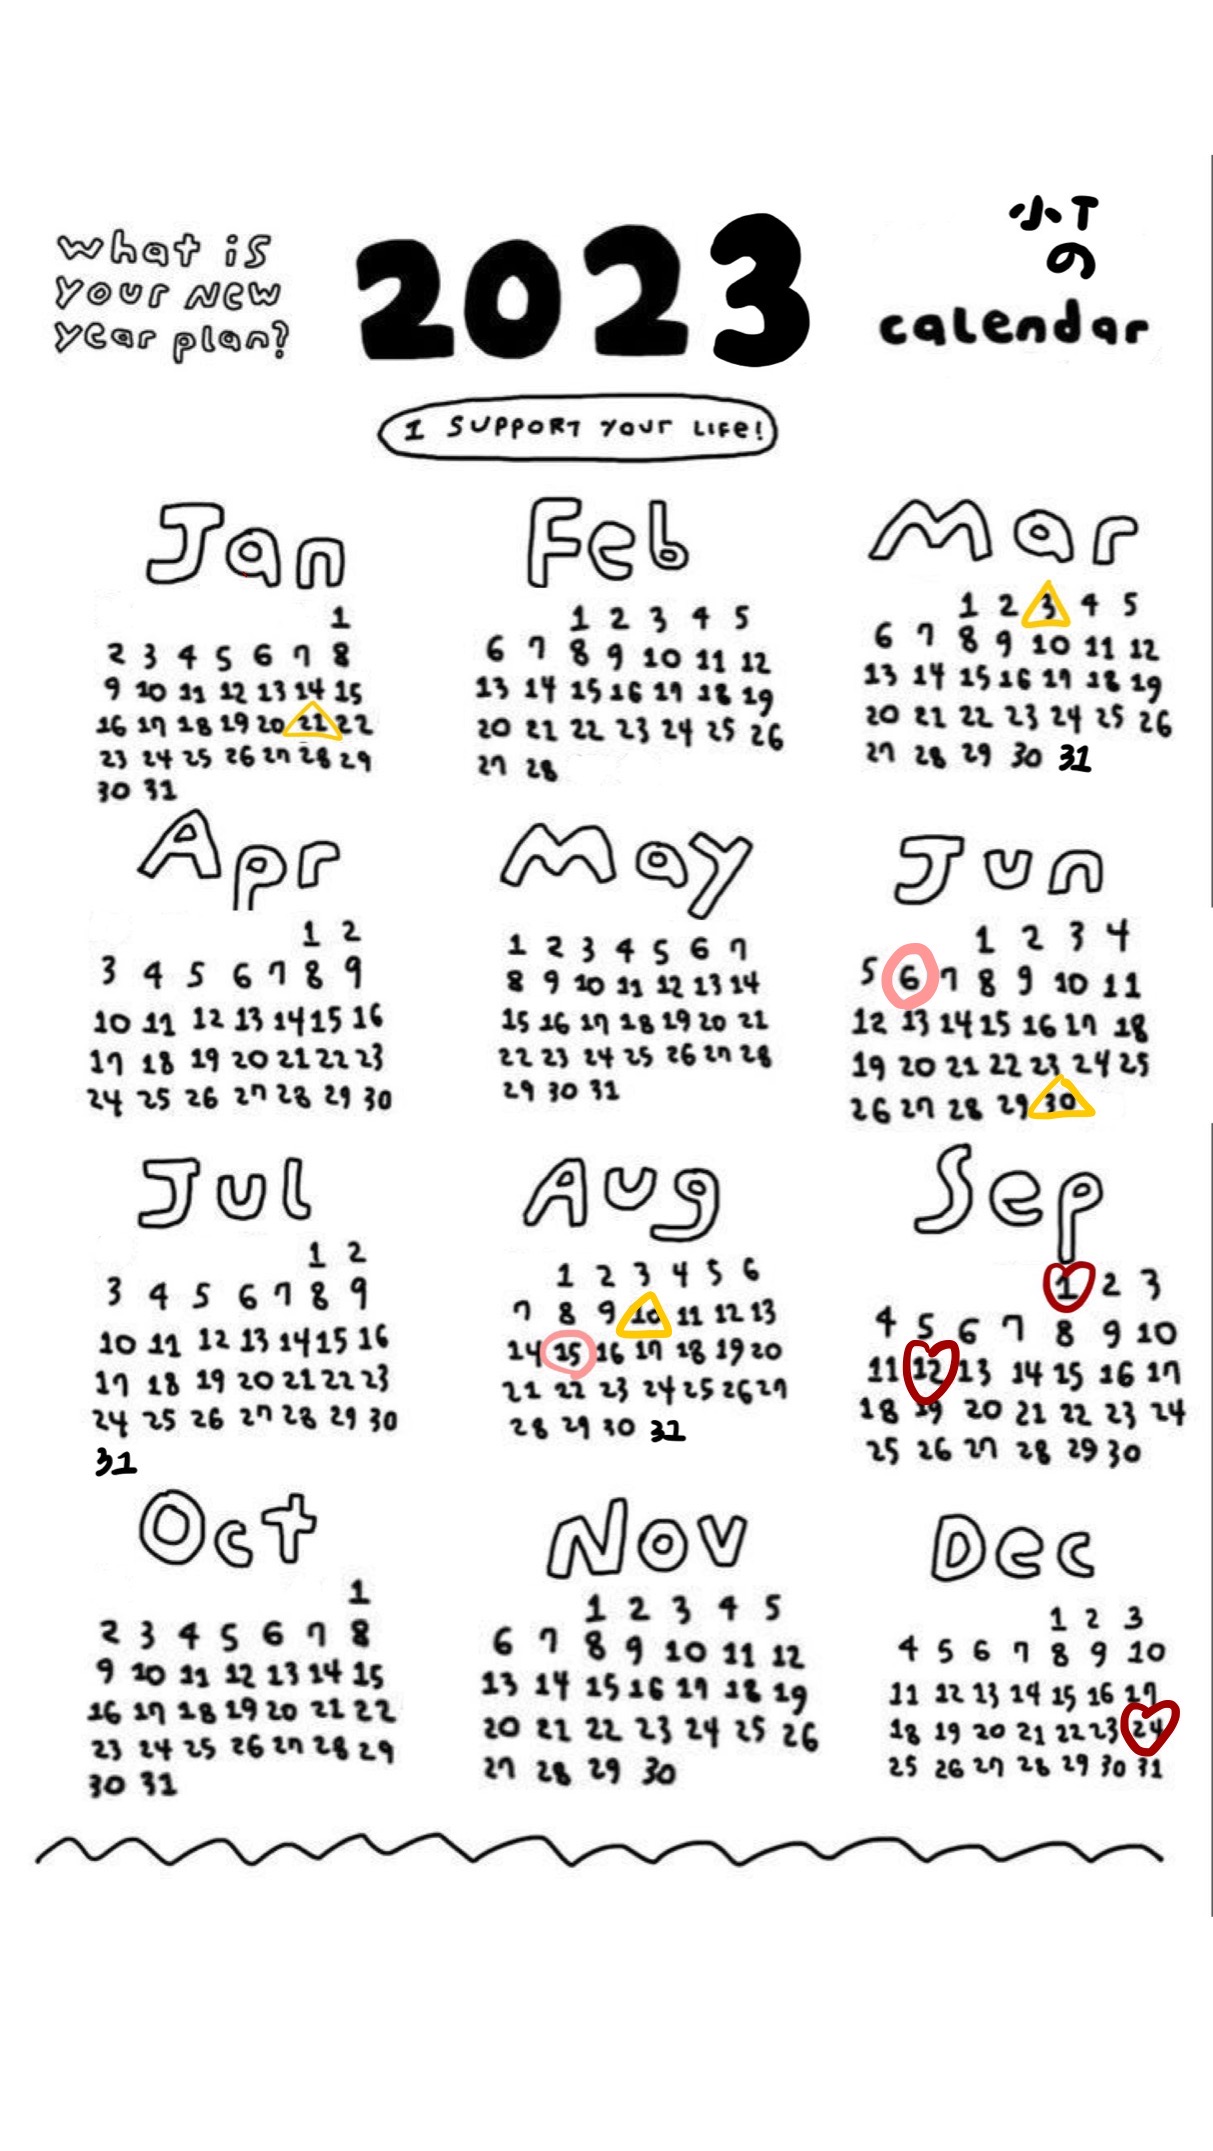 what is
your new
year plan?
2023
小T
の
calendar
I SUPPORT YOUR LIFE!
Jan
1
2 3 4 5 6 7 8
9 10 11 12 13 14 15
16 17 18 19 20 21 22
23 24 25 26 27 28 29
30 31
Feb
1 2 3 4 5
6 7 8 9 10 11 12
13 14 15 16 17 18 19
20 21 22 23 24 25 26
27 28
Mar
1 2 3 4 5
6 7 8 9 10 11 12
13 14 15 16 17 18 19
20 21 22 23 24 25 26
27 28 29 30 31
Apr
1 2
3 4 5 6 7 8 9
10 11 12 13 14 15 16
17 18 19 20 21 22 23
24 25 26 27 28 29 30
May
1 2 3 4 5 6 7
8 9 10 11 12 13 14
15 16 17 18 19 20 21
22 23 24 25 26 27 28
29 30 31
Jun
1 2 3 4
5 6 7 8 9 10 11
12 13 14 15 16 17 18
19 20 21 22 23 24 25
26 27 28 29 30
Jul
1 2
3 4 5 6 7 8 9
10 11 12 13 14 15 16
17 18 19 20 21 22 23
24 25 26 27 28 29 30
31
Aug
1 2 3 4 5 6
7 8 9 10 11 12 13
14 15 16 17 18 19 20
21 22 23 24 25 26 27
28 29 30 31
Sep
1 2 3
4 5 6 7 8 9 10
11 12 13 14 15 16 17
18 19 20 21 22 23 24
25 26 27 28 29 30
Oct
1
2 3 4 5 6 7 8
9 10 11 12 13 14 15
16 17 18 19 20 21 22
23 24 25 26 27 28 29
30 31
Nov
1 2 3 4 5
6 7 8 9 10 11 12
13 14 15 16 17 18 19
20 21 22 23 24 25 26
27 28 29 30
Dec
1 2 3
4 5 6 7 8 9 10
11 12 13 14 15 16 17
18 19 20 21 22 23 24
25 26 27 28 29 30 31